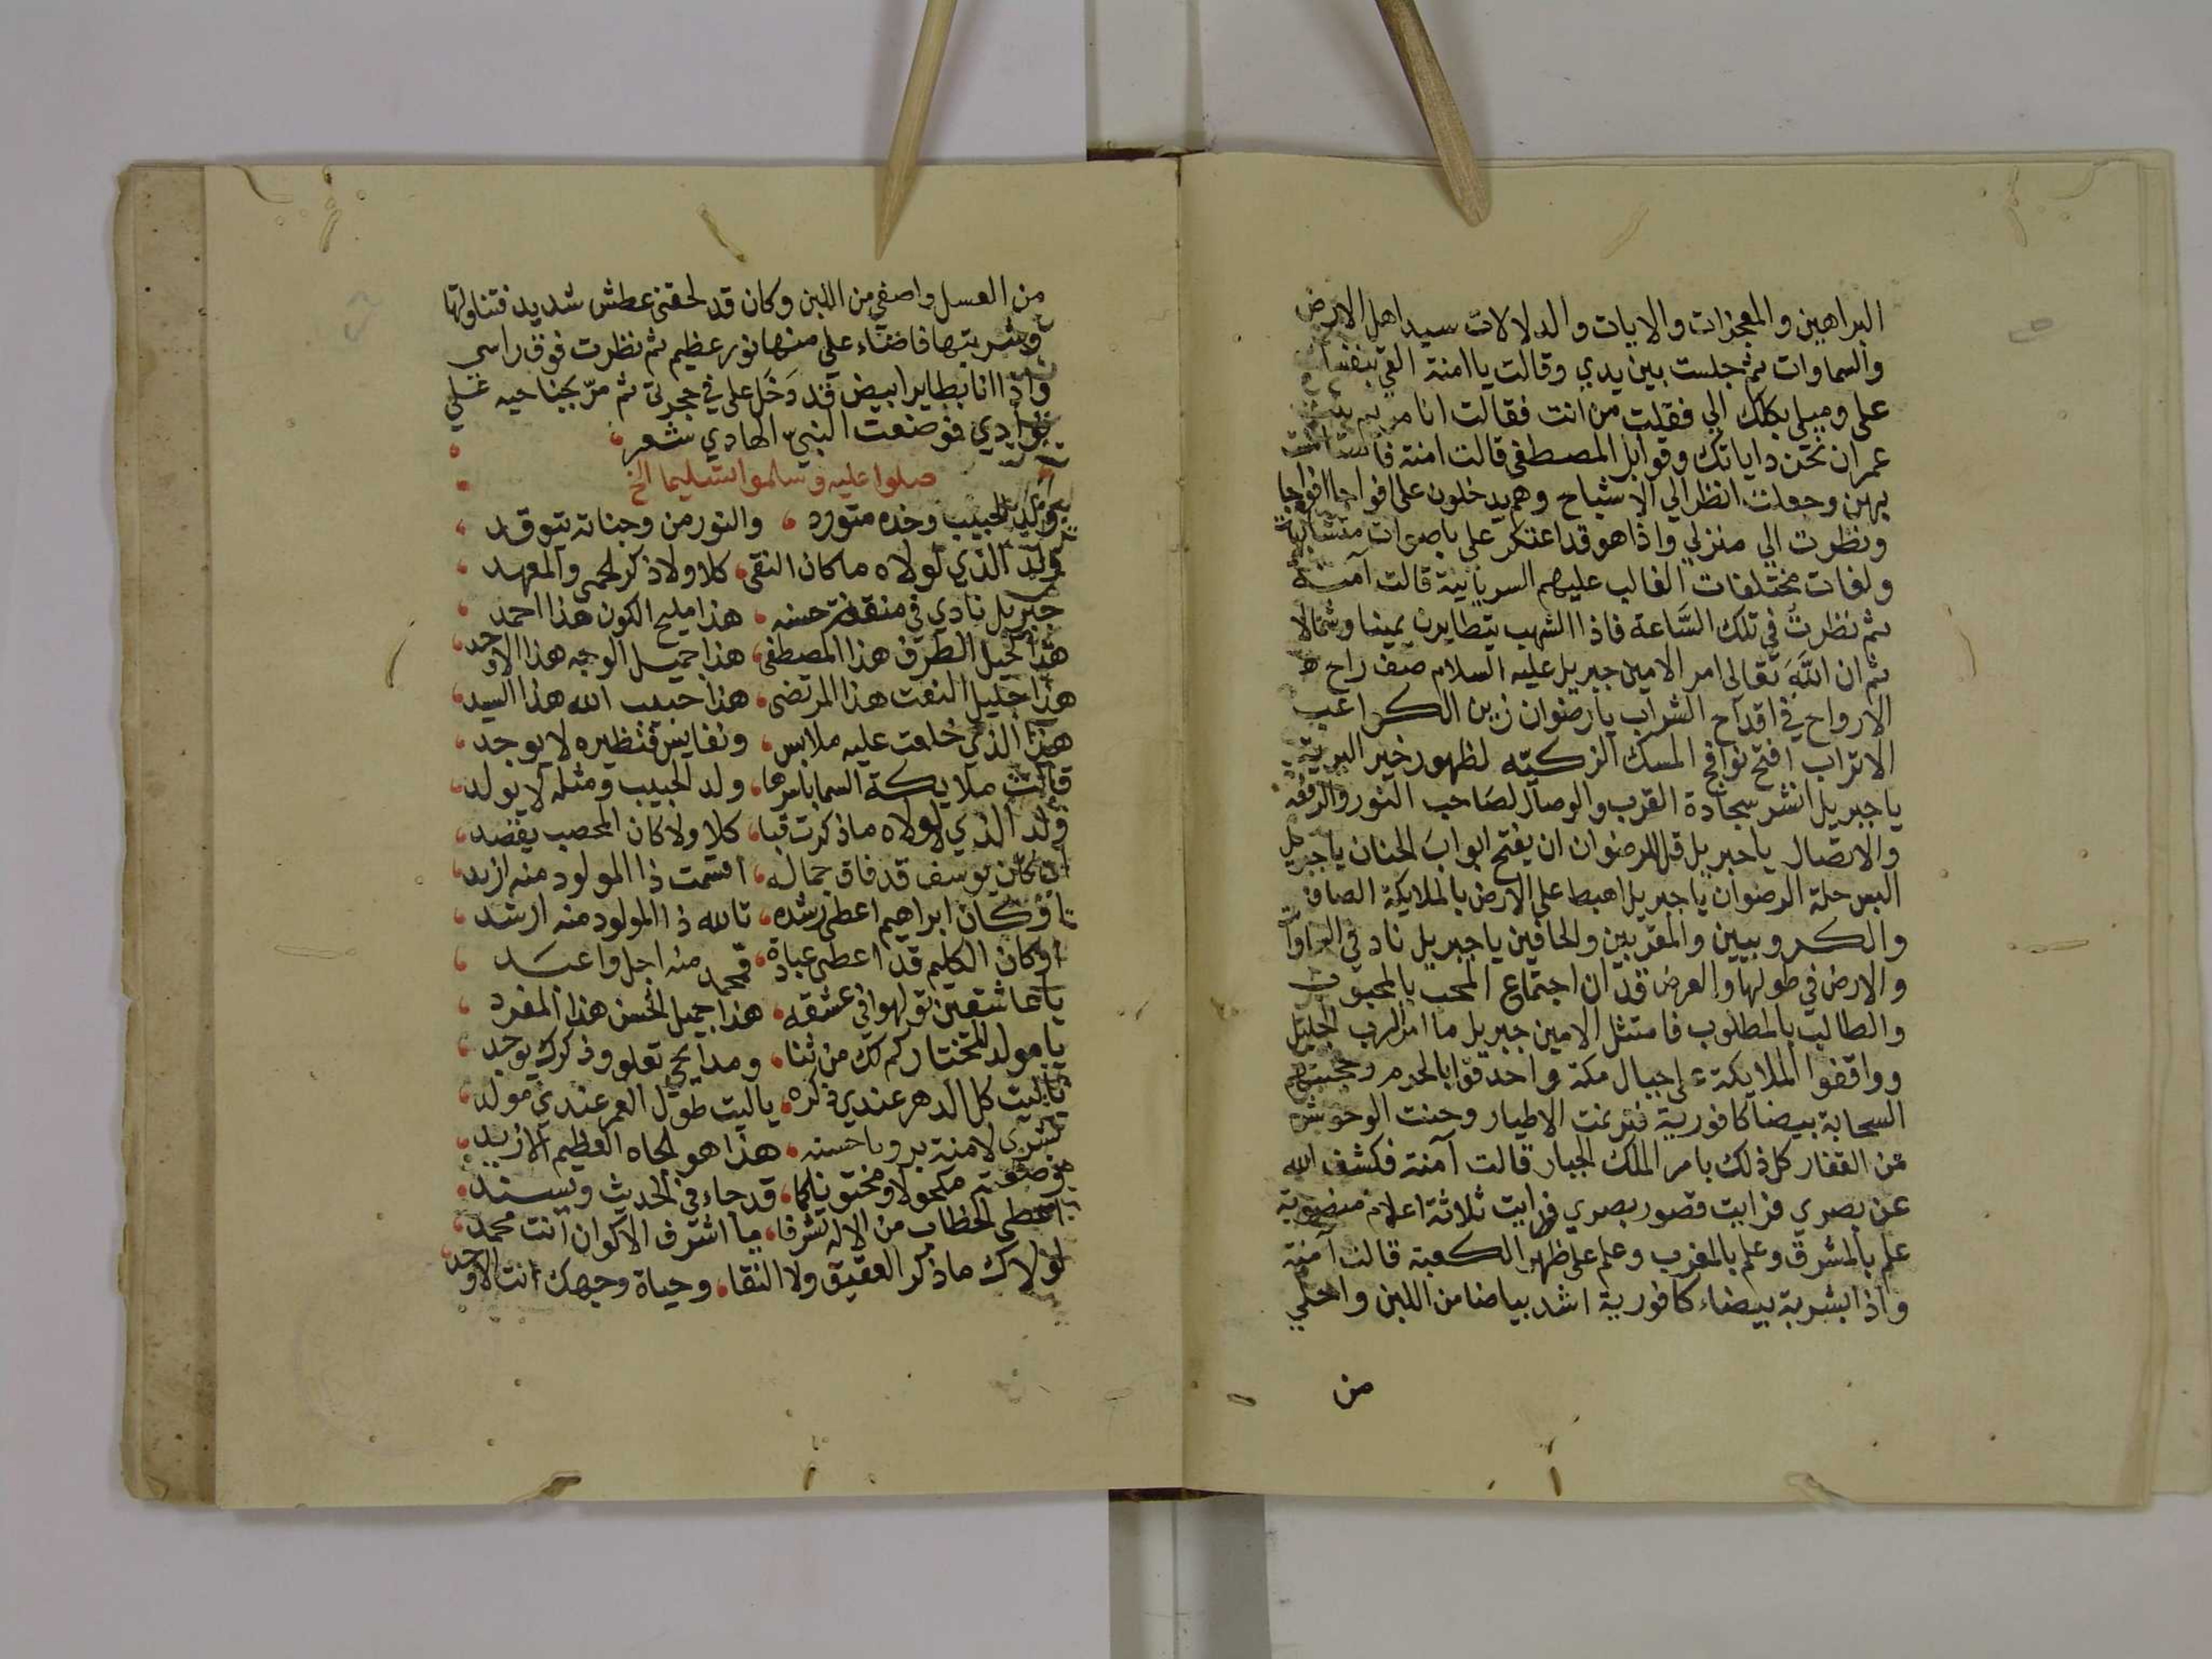 البراهين والمعجزات والايات والدلالات سيد اهل الارض
والسماوات ثم جلست بين يدي وقالت يا امنة القي بنفسك
علي وميلي بكلك الي فقلت من انت فقالت انا مريم بنت
عمران نحن داياتك وقوابل المصطفى قالت امنة فاستانست
بهن وجعلت انظر الي الاشباح وهم يدخلون علي افواجا افواجا
ونظرت الي منزلي واذا هو قد اعتكر علي باصوات متشابهة
ولغات مختلفات الغالب عليهم السريانية قالت آمنة
ثم نظرت في تلك السَّاعة فاذا الشهب يتطايرن يمينا وشمالا
ثم ان اللَّهَ تعالى امر الامين جبريل عليه السلام صف راح
الارواح في اقداح الشراب يا رضوان زين الكواعب
الاتراب افتح نوافج المسك الزكيّه لظهور خير البرية
يا جبريل انشر سجادة القرب والوصال لصَاحب النور والرفعه
والاتصال يا جبريل قل لرضوان ان يفتح ابوابَ الجنان يا جبريل
البس حلة الرضوان يا جبريل اهبط على الارض بالملايكة الصافين
والكروبيين والمقربين والحافين يا جبريل ناد في السماوات
والارض في طولها والعرض قد ان اجتماع المحب بالمحبوب
والطالب بالمطلوب فامتثل الامين جبريل ما امر الرب الجليل
وواقفوا الملايكة على جبال مكة واحدقوا بالحرم وحجبتهم
السحابة بيضا كافورية فترنمت الاطيار وحنت الوحوش
من القفار كل ذلك بامر الملك الجبار قالت آمنة فكشف الله
عن بصري فرايت قصور بصري فرايت ثلاثة اعلام منصوبة
علم بالمشرق وعلم بالمغرب وعلم على ظهر الكعبة قالت آمنة
واذا بشربة بيضاء كافورية اشد بياضا من اللبن واحلي
من
من العسل واصفي من اللبن وكان قد لحقني عطش شديد فتناولتها
وشربتها فاضاء علي منها نور عظيم ثم نظرت فوق راسي
واذا انا بطاير ابيض قد دَخَل على في حجرتى ثم مرّ بجناحيه علي
فوادي فوضعت النبيّ الهادي شعر
صلوا عليه وسلموا تسليما الخ
ولد الحبيب وخده متورد ، والنور من وجناته يتوقد
ولد الذي لولاه ما كان النقى، كلا ولا ذكر الحمى والمعهد
جبريل نادي في منصة حسنه، هذا مليح الكون هذا احمد
هذا كحيل الطرف هذا المصطفى، هذا جميل الوجه هذا الاوحد
هذا جليل النعت هذا المرتضى، هذا حبيب الله هذا السيد
هذا الذي خُلعت عليه ملابس، ونفايس فنظيره لا يوجد
قالت ملايكة السما باسرها، ولد الحبيب ومثله لا يولد
ولد الذي لولاه ما ذكرت قبا، كلا ولا كان المحصب يقصد
ان كان يوسف قد فاق جماله، اقسمت ذا المولود منه ازيد
او كان ابراهيم اعطى رشده، تالله ذا المولود منه ارشد
او كان الكليم قد اعطى عبادة، فمحمد منه اجل واعبَد
يا عاشقين تولهوا في عشقه، هذا جميل الحسن هذا المفرد
يا مولد المختار كم لك من ثنا، ومدايح تعلو وذكرك يوجد
يا ليت كل الدهر عندي ذكره، يا ليت طول العمر عندي مولد
بشرى لامنة برويا حسنه، هذا هو الجاه العظيم الازيد
وضعته مكحولا ومختونا كما، قد جاء في الحديث ويسند
اعطى الخطاب من الاله تشرفا، يا اشرف الاكوان انت محمد
لولاك ما ذكر العقيق ولا النقا، وحياة وجهك انت الاوحد